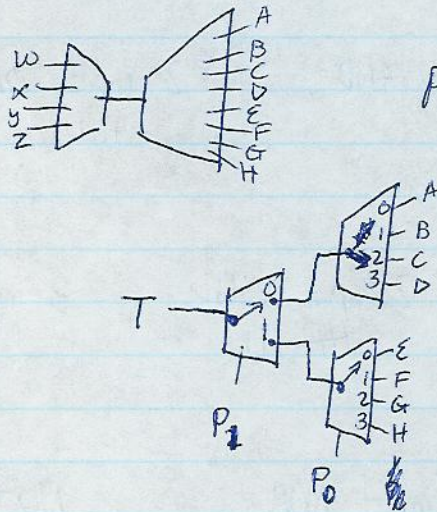 W
X
y
Z
A
B
C
D
E
F
G
H
P
T
0
1
0
1
2
3
A
B
C
D
0
1
2
3
E
F
G
H
P1
P0